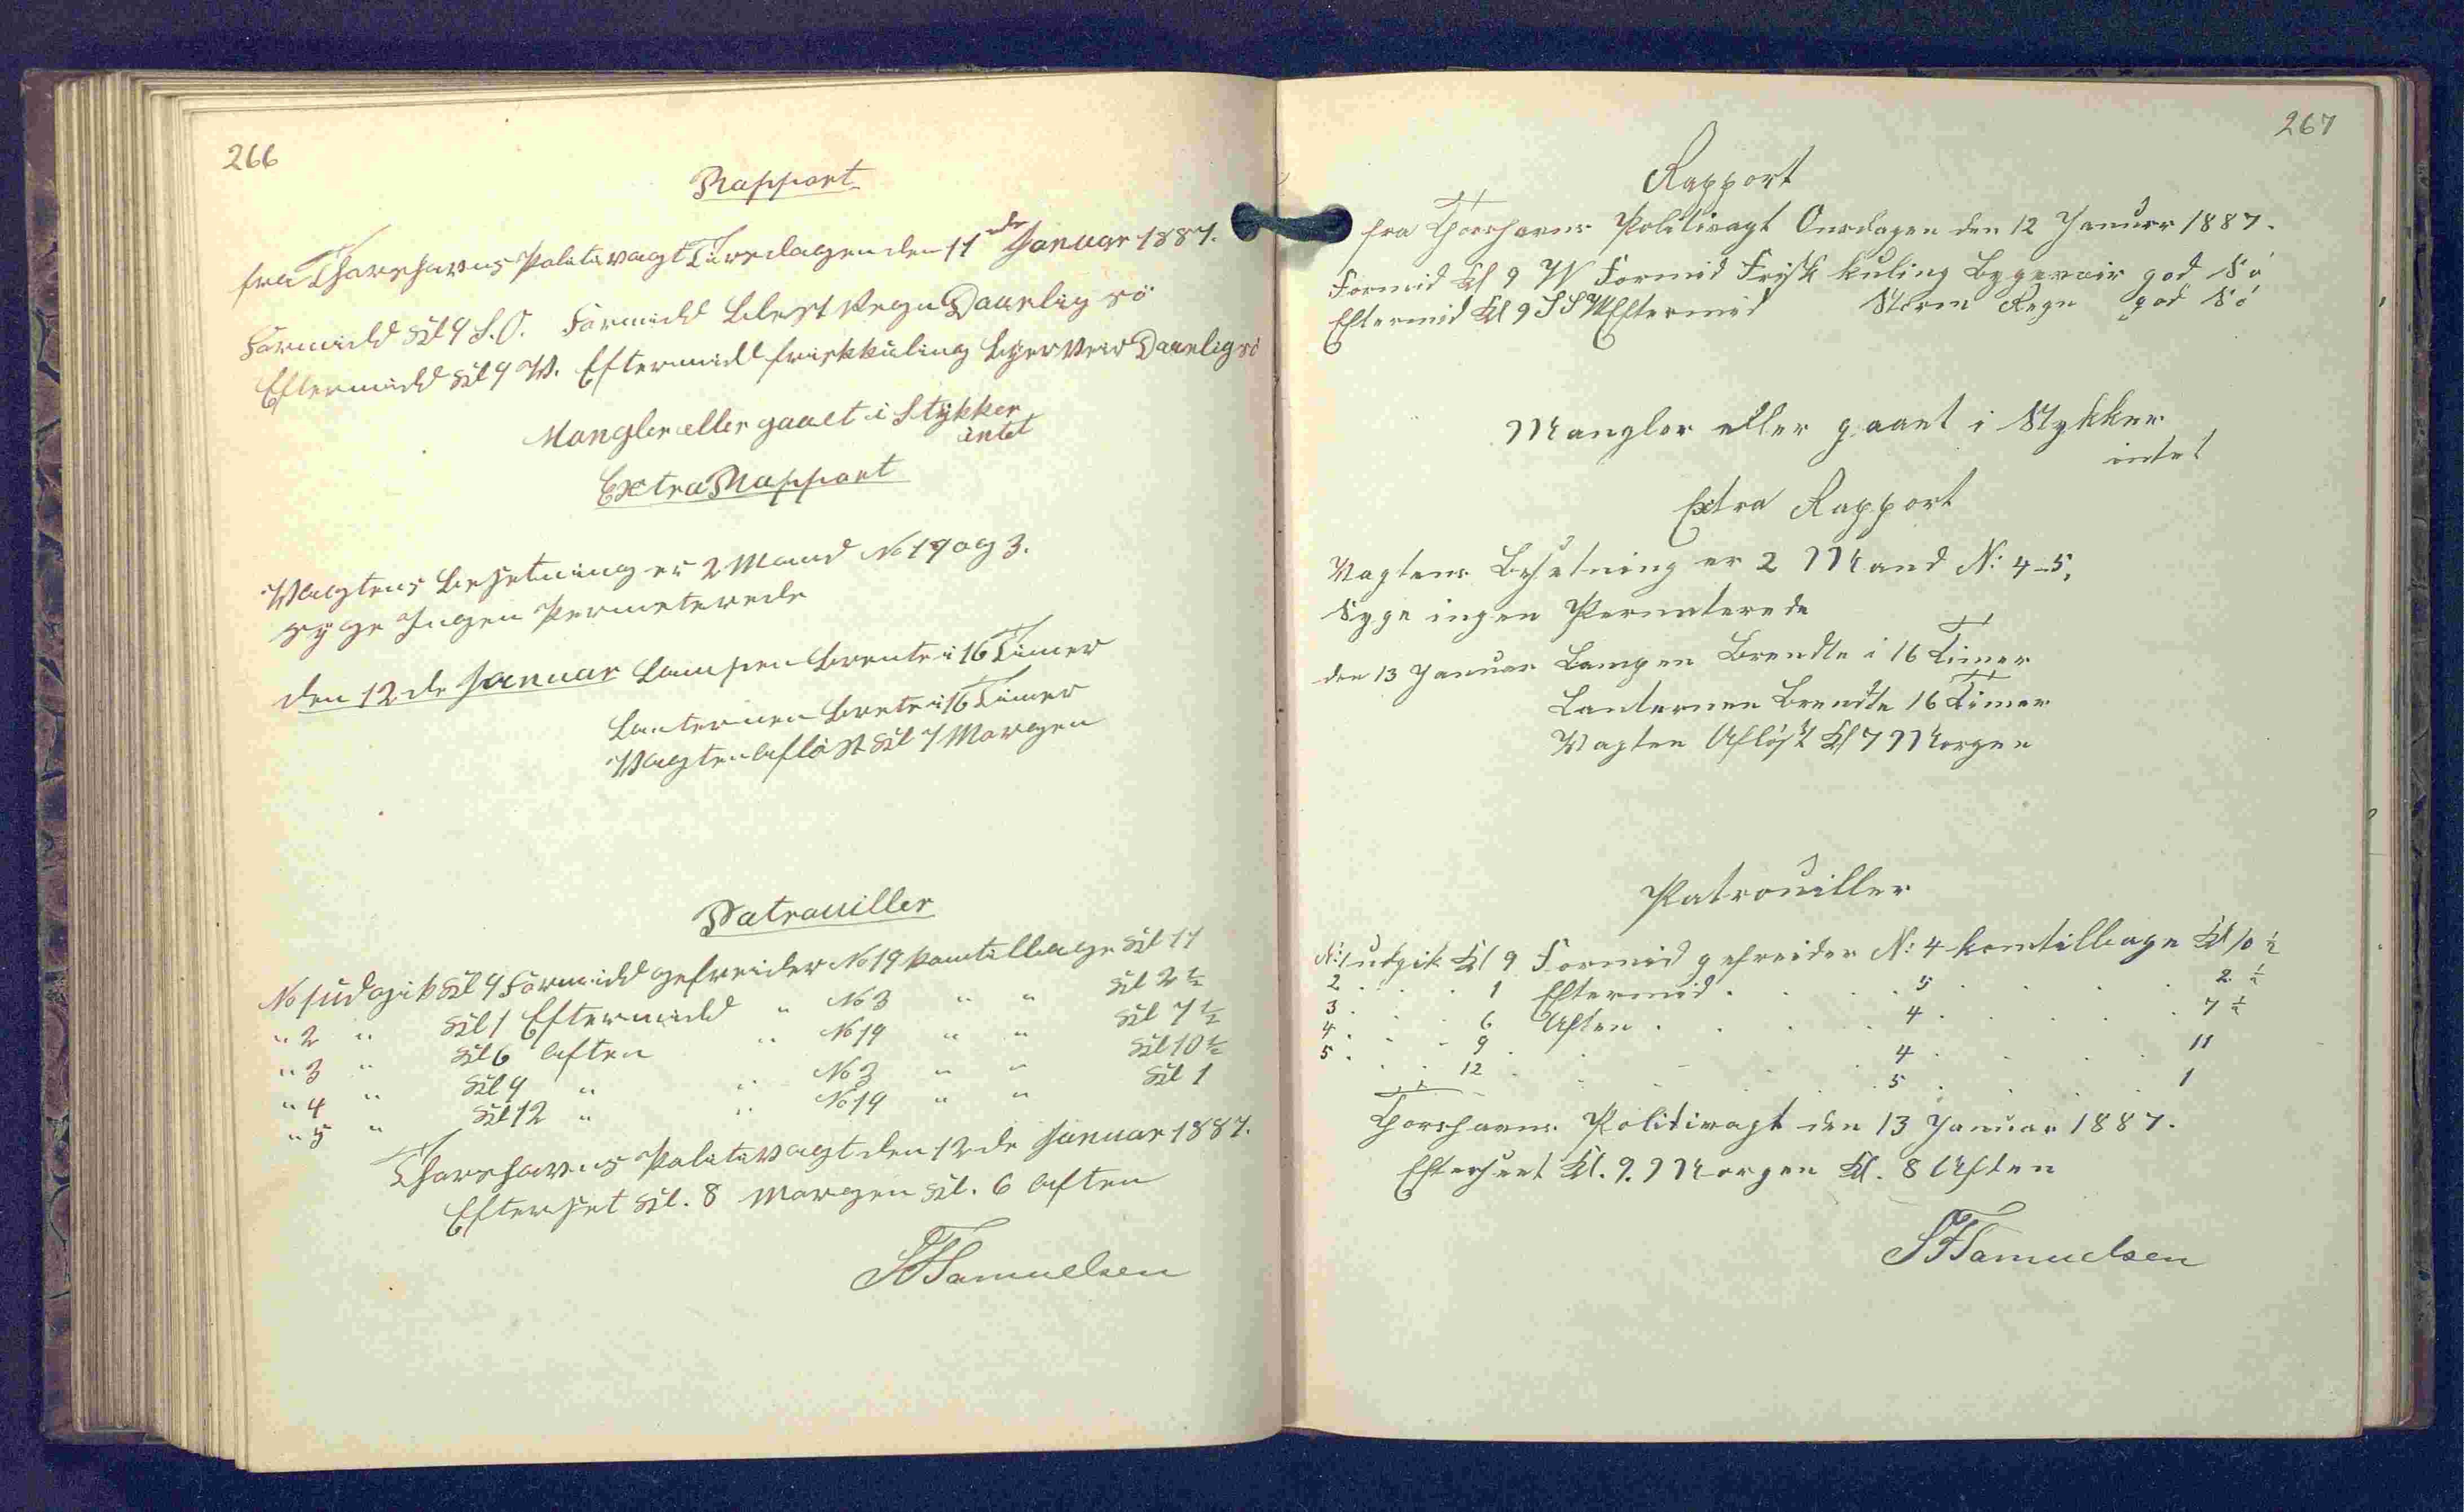 266
Rapport
fra Thorshavns Politivagt Tirsdagen den 11 de Januar 1887.
Formidd Kl 9 S.O. Formidd Blest Regn Daarlig sö
Eftermidd Kl 9 W. Eftermidd friskkuling Byerveir Daarlig sö
Mangler eller gaaet i Stykker
intet
Extra Rapport
Vagtens Besetning er 2 Mand No 19 og 3.
syge Ingen Permeterede
den 12 de Januar Lampen Brente i 16 Timer
Lanternen Brente i 16 Timer
Vagten Aflöst Kl 7 Morgen
Patrouiller
No 1 udgik Kl 9 Formidd gefreider No 19 kom tilbage Kl 11
" 2 " Kl 1 Eftermidd " No 3 " " Kl 2 1/2
" 3 " Kl 6 Aften " No 19 " " Kl 7 1/2
" 4 " Kl 9 " " No 3 " " Kl 10 1/2
" 5 " Kl 12 " " No 19 " " Kl 1
Thorshavns Politivagt den 12 de Januar 1887.
Efterset Kl. 8 Morgen Kl. 6 Aften
SFSamuelsen
267
Rapport
fra Thorshavns Politivagt Onsdagen den 12 Januar 1887.
Formid Kl 9 W Formid Frisk kuling Bygeveir god Sö
Eftermid Kl 9 SSW Eftermid Storm Regn god Sö
Mangler eller gaaet i Stykker
intet
Extra Rapport
Vagtens Besetning er 2 Mand N: 4-5,
Syge ingen Permeterede
den 13 Januar Lampen Brendte i 16 Timer
Lanternen Brendte 16 Timer
Vagten Aflöst Kl 7 Morgen
Patrouiller
N: 1 udgik Kl 9 Formid gefreider N: 4 kom tilbage Kl 10 1/2
2 . . . 1 Eftermid . . . 5 . . . 2 1/2
3 . . . 6 Aften . . . 4 . . . 7 1/2
4 . . . 9 . . . 4 . . . 11
5 . . . 12 . . . 5 . . . 1
Thorshavns Politivagt den 13 Januar 1887.
Efterseet Kl. 9. Morgen Kl. 8 Aften
SFSamuelsen